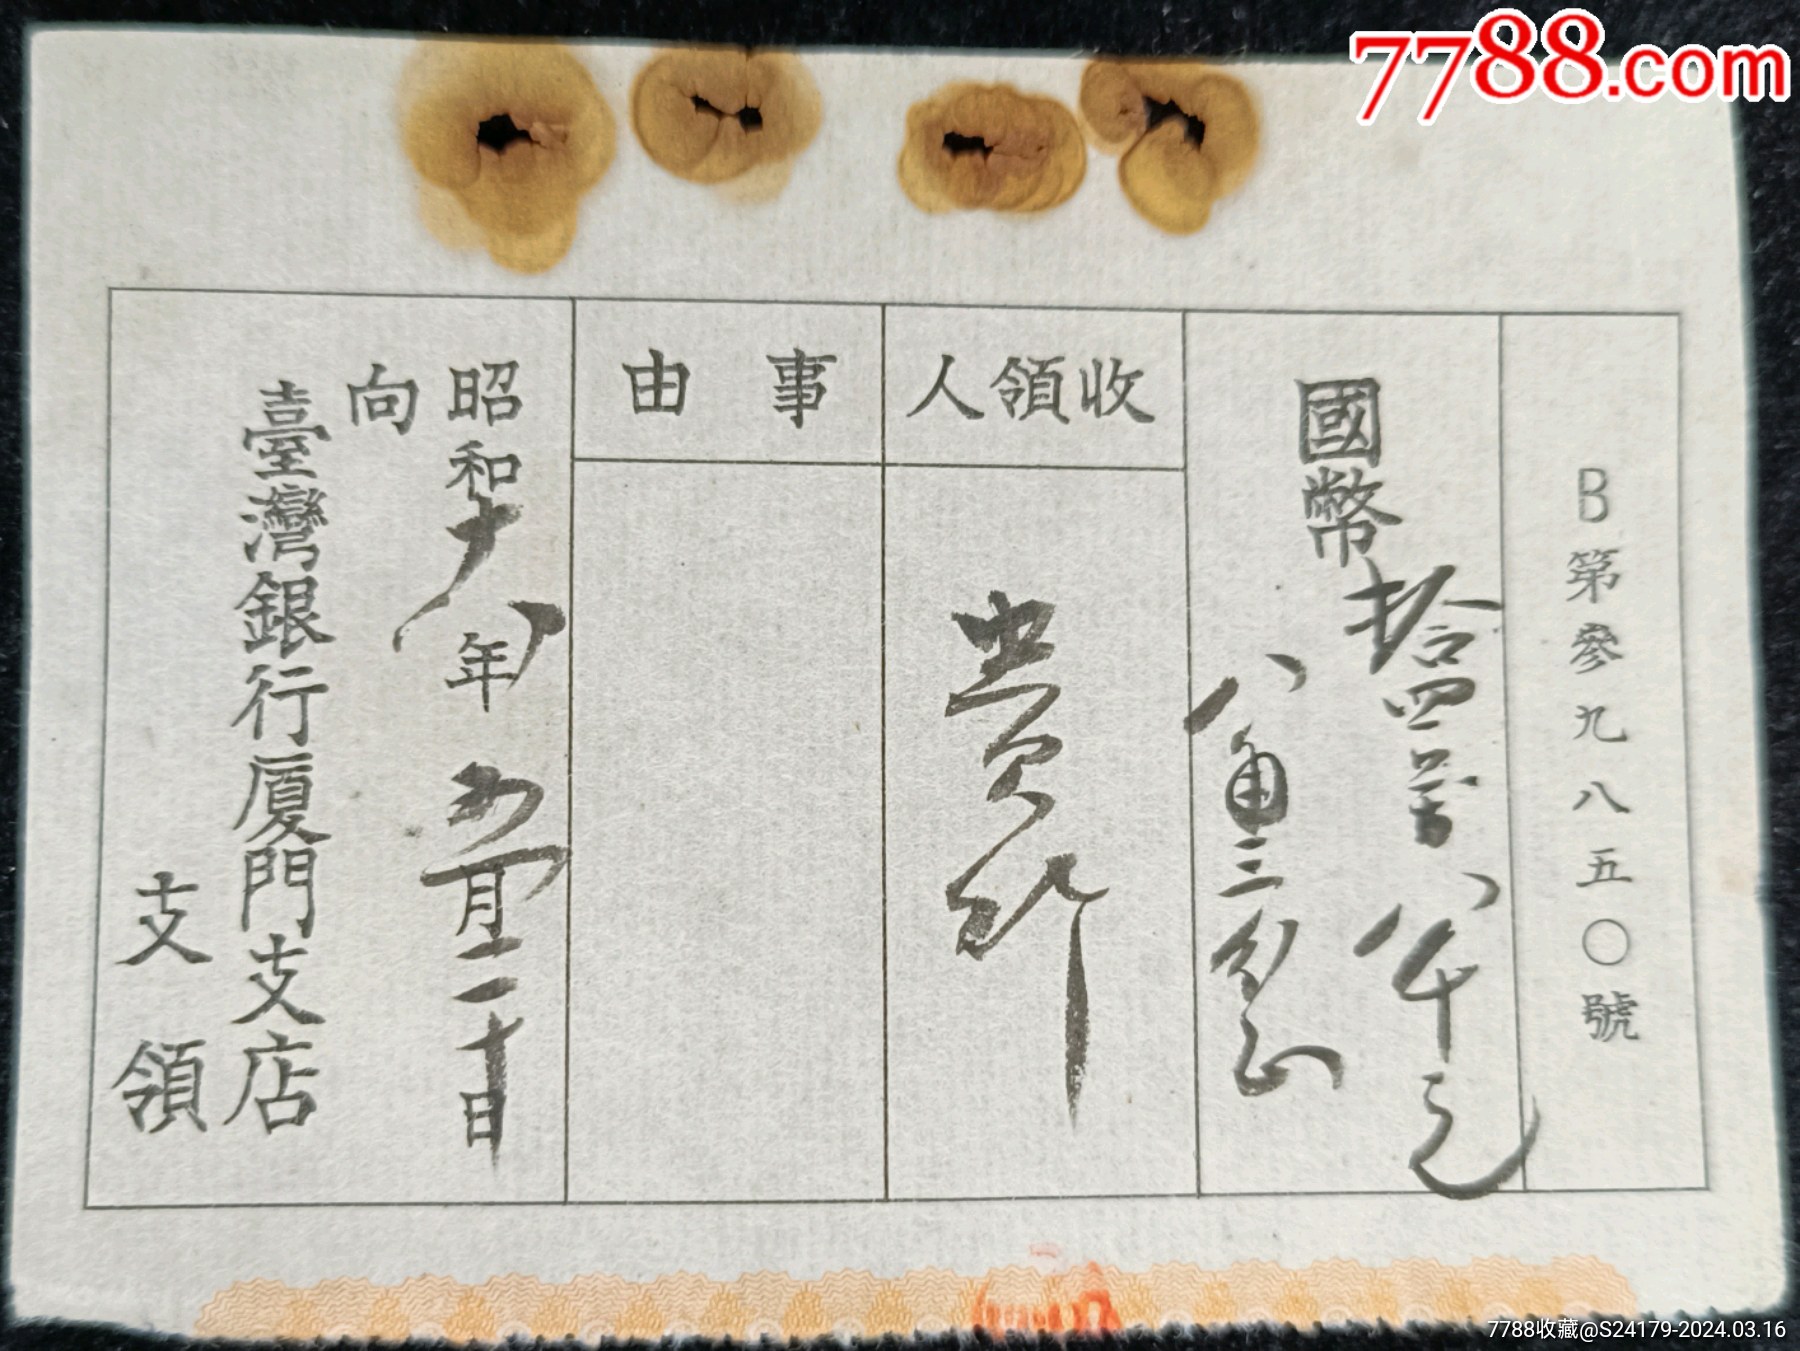 7788.com
B第參九八五〇號
國幣拾四萬八千元
八角三分正
收領人
貴行
事由
昭和十八年五月二十日
向
臺灣銀行廈門支店
支領
7788收藏@S24179-2024.03.16